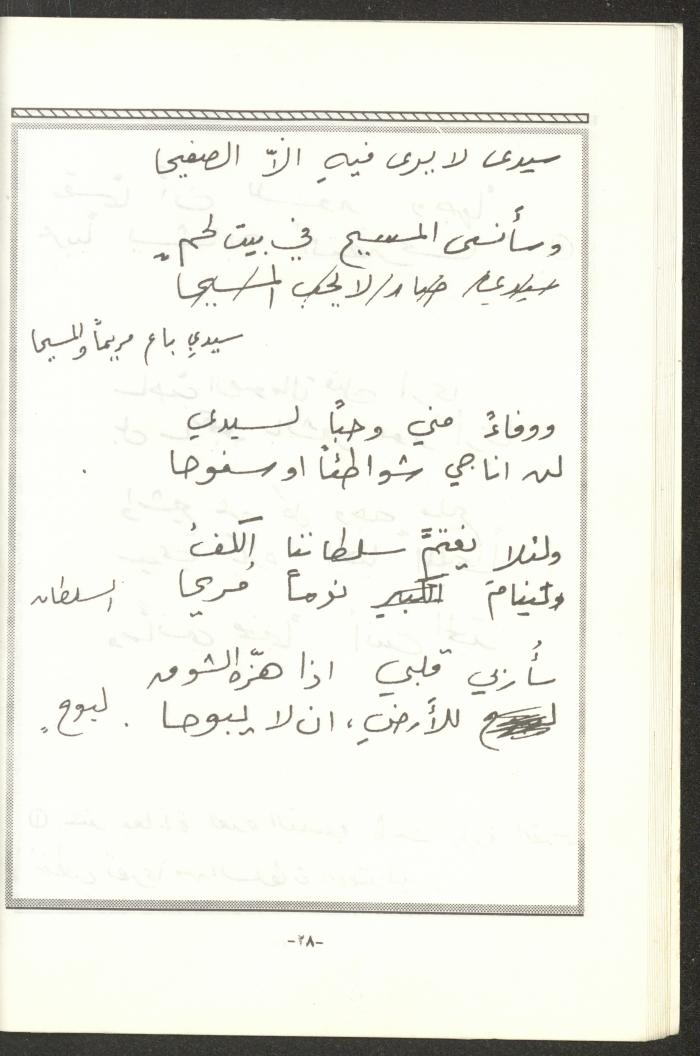 سيدي لا يرى فيهِ الاّ الصفيحا
وسأنسى المسيح في بيت لحمٍ
سيدي صار لا يحب المسيحا
سيدي باع مريماً والمسيحا
ووفاءً مني وحباً لسيدي
لن اناجي شواطئاً او سفوحا
ولئلا يغتمَّ سلطاننا الكفُ
ولينامَ الكبير نوماً مُريحا السلطان
سأُربي قلبي اذا هزّه الشوق
لبوحٍ للأرضِ، ان لا يبوحا
-٢٨-